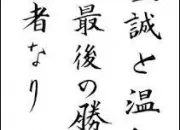 誠と温
最後の勝
者なり